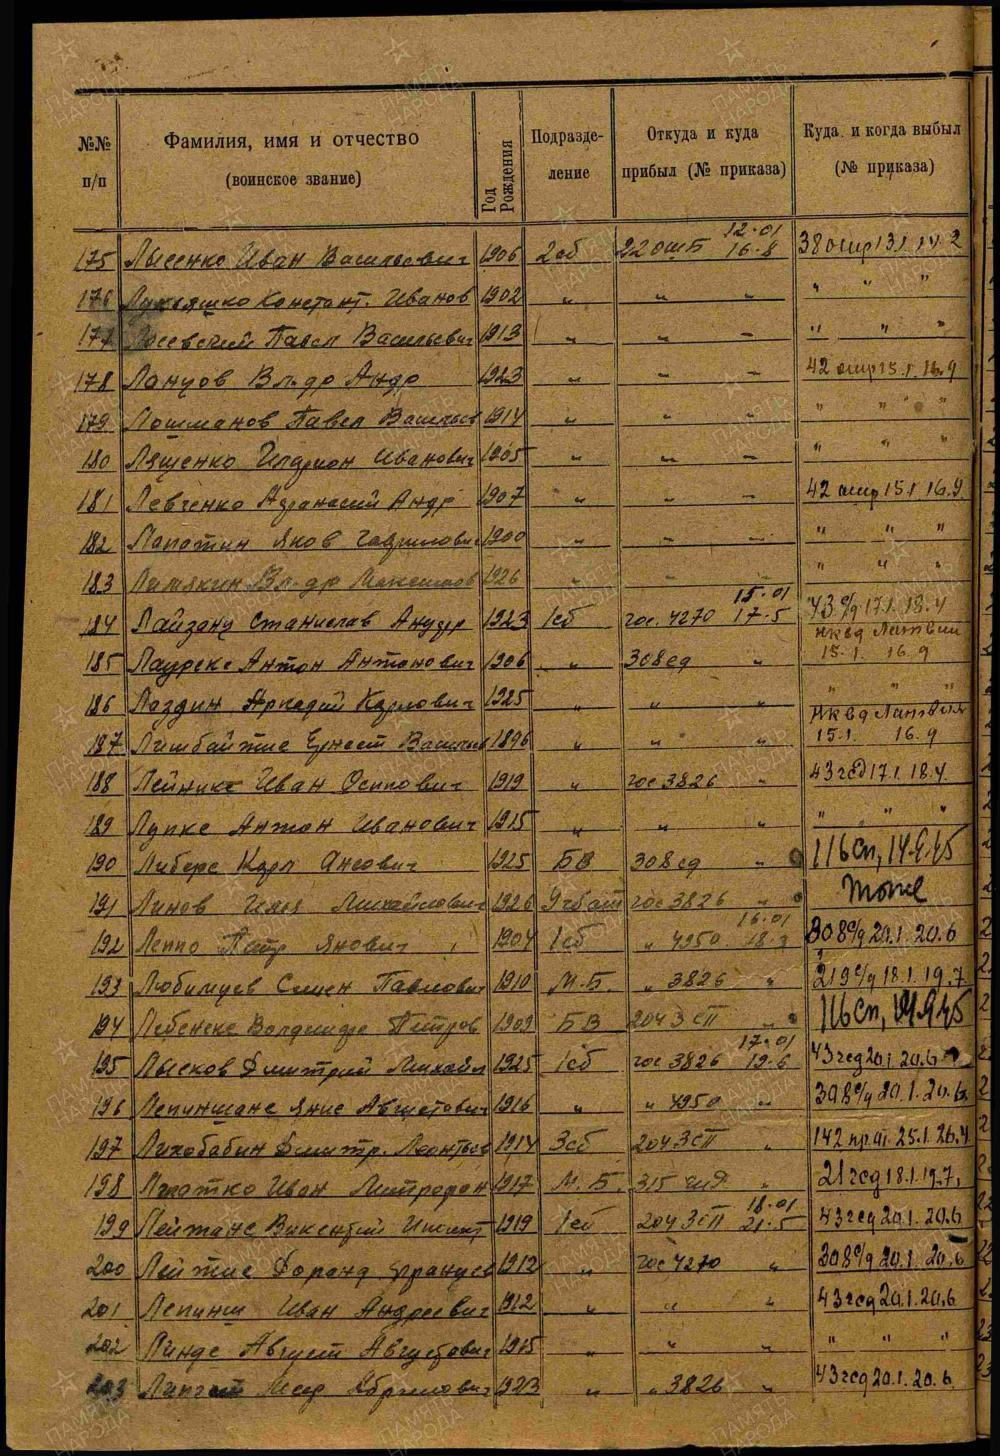 №№ п/п Фамилия, имя и отчество (воинское звание) Год Рождения Подразде-ление Откуда и куда прибыл (№ приказа) Куда и когда выбыл (№ приказа)
12.01
175 Лысенко Иван Васильевич 1906 2сб 22 ошБ 16-8 38 осир 13.1. 14.2
176 Лукьяшко Констант. Иванов 1902 " " " " " "
177 Павел Васильевич 1913 " " " " " "
178 Ланцов Вл-др Андр 1923 " " " 42 осир 15.1. 16.9
179 Лошманов Павел Васильев 1914 " " " " " "
180 Лященко Иларион Иванович 1905 " " " " " "
181 Левченко Афанасий Андр 1907 " " " 42 осир 15.1 16.9
182 Лапатин Яков Гаврилович 1900 " " " " " "
183 Вл-др Максимов 1926 " " " " " "
15.01
184 Станислав 1923 1сб гос. 4270 17-5 43 с/д 17.1. 18.4
нквд Латвии
185 Антон Антонович 1906 " 308 сд " 15.1. 16.9
186 Лаздин Аркадий Карлович 1925 " " " " " "
нквд Латвия
187 Эрнест 1896 " " " 15.1. 16.9
188 Лейникс Иван Осипович 1919 " гос 3826 " 43 гсд 17.1. 18.4.
189 Лупке Антон Иванович 1915 " " " " " "
190 Либерс Карл Ансович 1925 БВ 308 сд " 116 сп,
191 Линов Михайлович 1926 Учбат гос 3826 " тоже
16.01
192 Леппо Петр Янович 1904 1сб " 4250 18-3 308 с/д 20.1. 20.6
193 Любимцев Семен Павлович 1910 М.Б. " 3826 " 219 с/д 18.1. 19.7
194 Петров 1909 БВ 204 ЗСП " 116 сп,
17-01
195 Лысков Дмитрий Михайл 1925 1сб гос 3826 19-6 43 гсд 20.1. 20.6
196 Янис Августович 1916 " " 4250 " 308 с/д 20.1. 20.6.
197 Лихобабин Дмитр. Леонтьев 1914 3сб 204 ЗСП " 142 25.1. 26.4
198 Иван Митрофан 1917 М.Б. 315 " 21 гсд 18.1. 19.7.
18-01
199 Лейтанс Викентий 1919 1сб 204 ЗСП 21-5 43 гсд 20.1. 20.6
200 Лейтис 1912 " гос 4270 " 308 с/д 20.1. 20.6
201 Лепинш Иван Андреевич 1912 " " " 43 гсд 20.1. 20.6
202 Линде Август Августович 1915 " " " " " "
203 1923 " " 3826 " 43 гсд 20.1. 20.6
ПАМЯТЬ НАРОДА